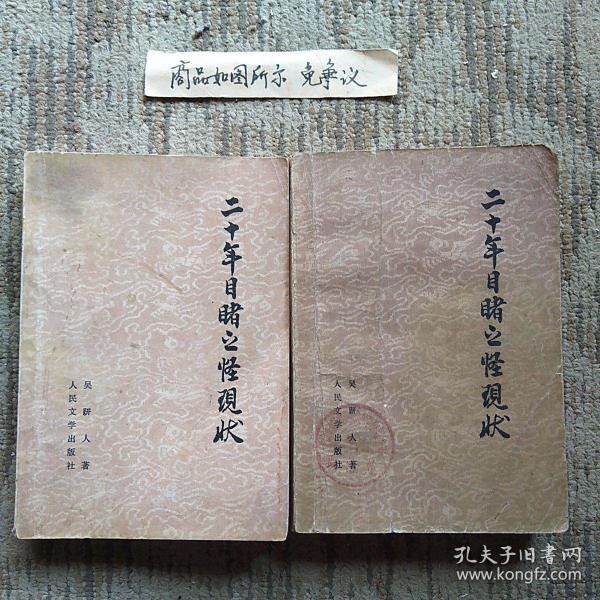 商品如图所示 免争议
二十年目睹之怪现状
吴趼人著
人民文学出版社
二十年目睹之怪现状
吴趼人著
人民文学出版社
孔夫子旧书网
www.kongfz.com